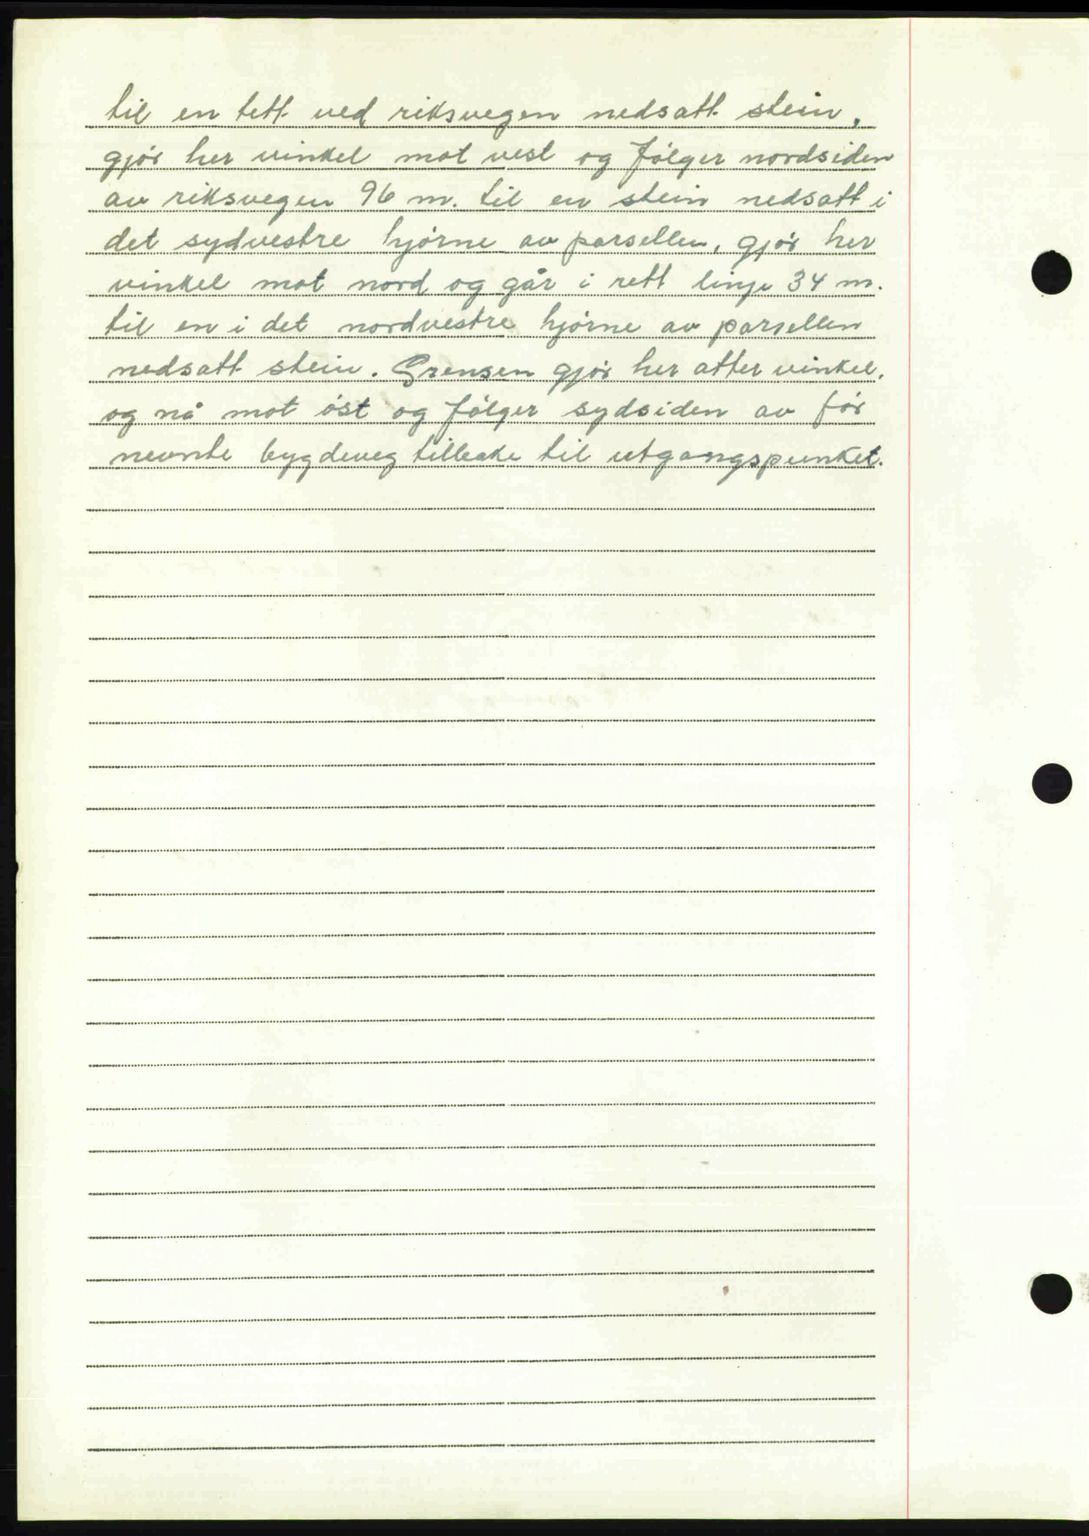 til en tett ved riksvegen nedsatt stein,
gjör her vinkel mot vest og følger nordsiden
av riksvegen 96 m. til en stein nedsatt i
det sydvestre hjörne av parsellen, gjör her
vinkel mot nord og går i rett linje 34 m.
til en i det nordvestre hjörne av parsellen
nedsatt stein. Grensen gjör her atter vinkel,
og nå mot öst og følger sydsiden av för
nevnte bygdeveg tilbake til utgangspunket.